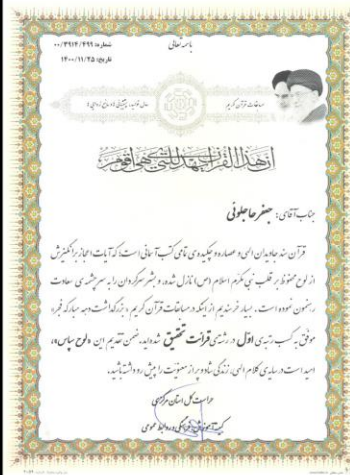 باسمه تعالی
شماره: ۰۰/۳۹۱۴/۴۹۹
تاریخ: ۱۴۰۰/۱۱/۲۵
مسابقات قرآن کریم
ان هذا القرآن یهدی للتی هی اقوم
جناب آقای: جعفر حاجلوئی
قرآن سند جاودان الهی و عصاره و چکیده‌ی تمامی کتب آسمانی است؛ که آیات اعجاز برانگیزش
از لوح محفوظ بر قلب نبی مکرم اسلام (ص) نازل شده، و بشر سرگردان را به سرچشمه‌ی سعادت
رهنمون نموده است. بسیار خرسندیم از اینکه در مسابقات قرآن کریم، بزرگداشت دهه مبارکه فجر،
موفق به کسب رتبه‌ی اوّل در رشته‌ی قرائت تحقیق شده‌اید. ضمن تقدیم این «لوح سپاس»،
امید است در سایه‌ی کلام الهی، زندگی شاد و پر از معنویت را پیش رو داشته باشید.
حراست کل استان مرکزی
کمیته آموزش، فرهنگی و روابط عمومی